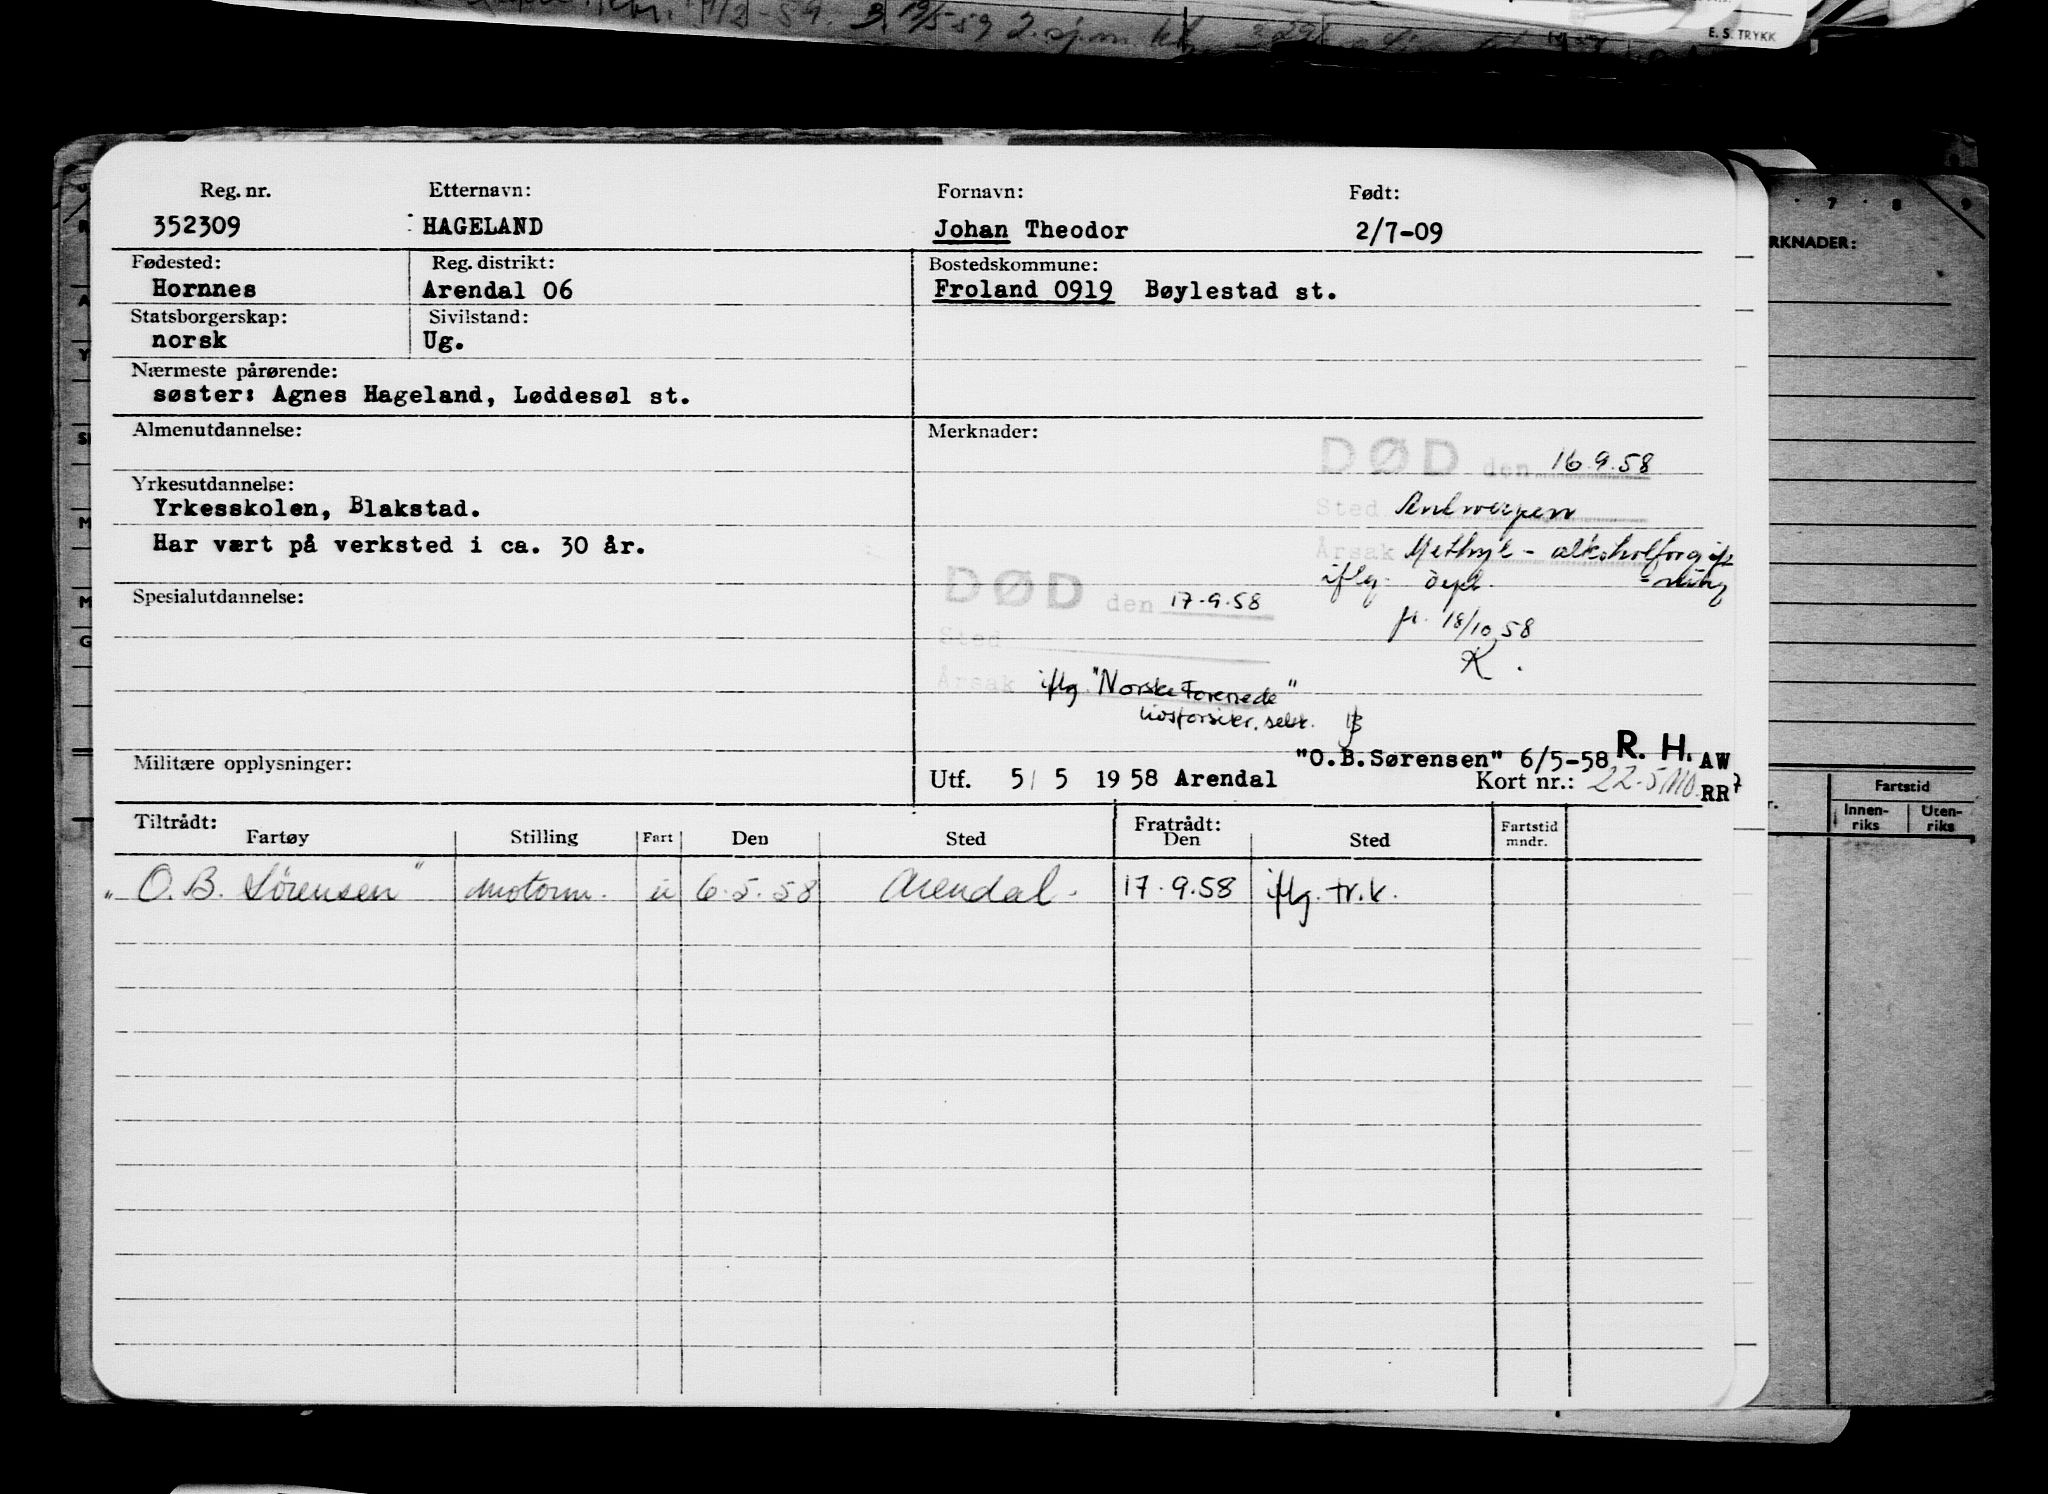 E. S. TRYKK
Reg. nr. Etternavn: Fornavn: Født:
352309 HAGELAND Johan Theodor 2/7-09
Fødested: Reg. distrikt: Bostedskommune:
Hornnes Arendal 06 Froland 0919 Bøylestad st.
Statsborgerskap: Sivilstand:
norsk Ug.
Nærmeste pårørende:
søster: Agnes Hageland, Løddesøl st.
Almenutdannelse: Merknader:
DØD den 16.9.58
Yrkesutdannelse:
Yrkesskolen, Blakstad.
Sted Antwerpen
Har vært på verksted i ca. 30 år.
Årsak Methyl-alkoholforgift
-ning
iflg.
18/10 58
K.
DØD den 17.9.58
Sted
Årsak iflg. "Norske Forenede"
livsforsikr. selsk.
Spesialutdannelse:
Militære opplysninger:
"O.B.Sørensen" 6/5-58 R. H. AW
Utf. 5/ 5 1958 Arendal Kort nr.: 22-5 RR7
Tiltrådt: Fratrådt:
Fartøy Stilling Fart Den Sted Den Sted Fartstid mndr.
"O. B. Sørensen" motorm. u 6.5.58 Arendal. 17.9.58 iflg. tr.k.
7 8 9
RKNADER:
Fartstid
Innen-
riks
Uten-
riks